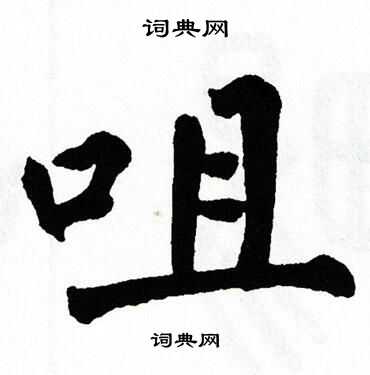 词典网
咀
词典网